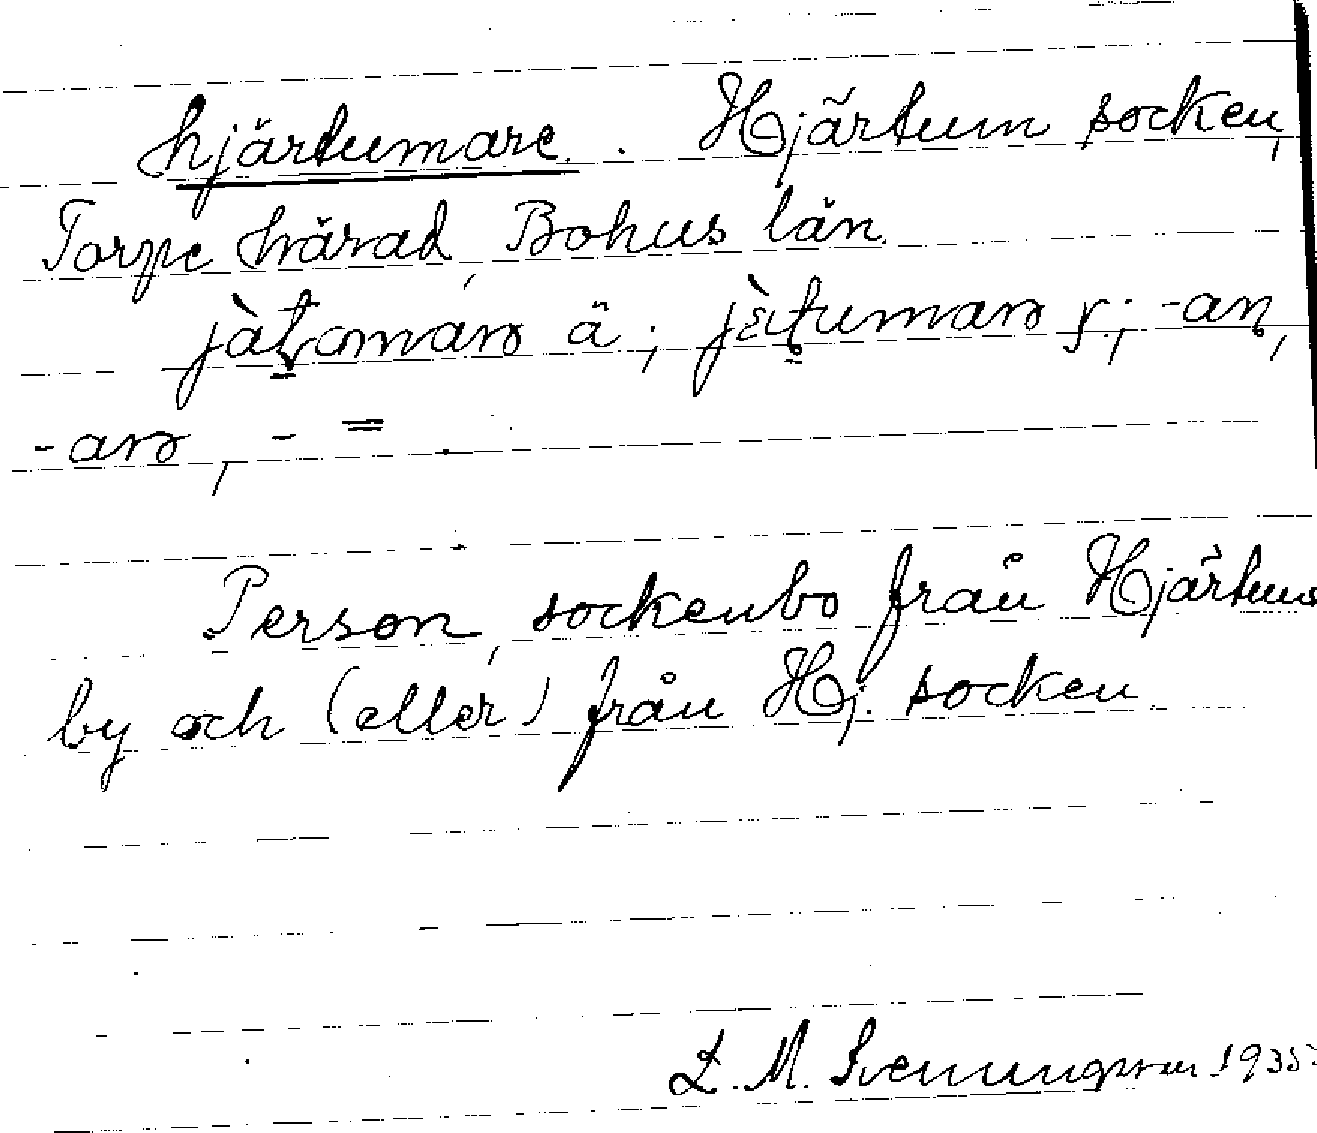 hjärtumare. Hjärtum socken,
Torpe härad, Bohus län
ä; -an,
-arə, - = .
Person, sockenbo från Hjärtums
by och (eller) från Hj. socken
L. M. Svenungsson 1935